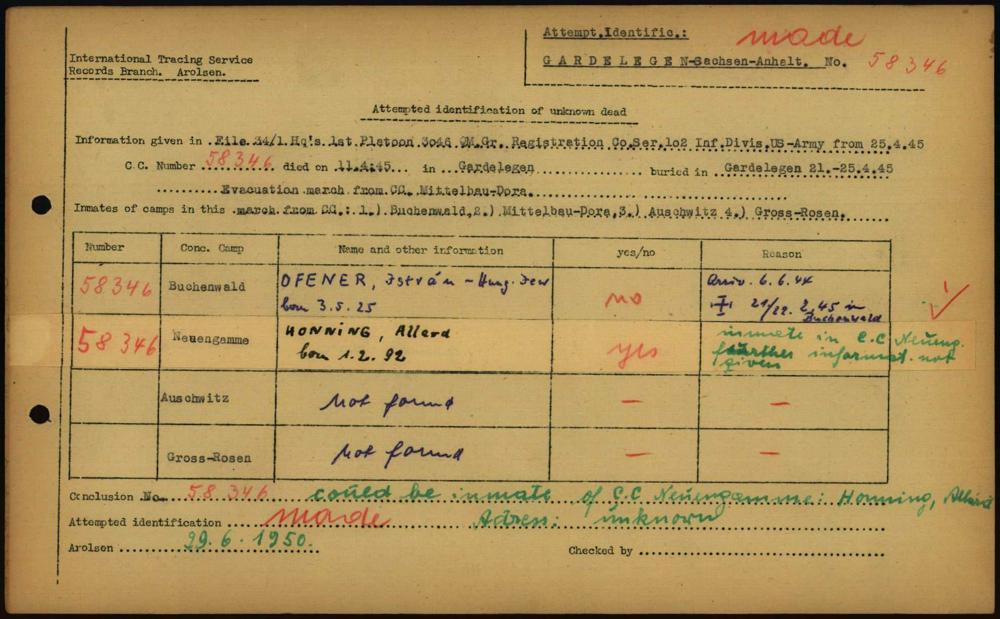 Attempt.Identific.: made
International Tracing Service
Records Branch. Arolsen.
GARDELEGEN-Sachsen-Anhalt. No. 58346
Attempted identification of unknown dead
Information given in File 34/1 Hq's 1st Pletoon 3046 QM.Gr. Registration Co.Ser.1o2 Inf.Divis.US-Army from 25.4.45
C.C. Number 58346 died on 11.4.45 in Gardelegen buried in Gardelegen 21.-25.4.45
Evacuation march from CC. Mittelbau-Dora.
Inmates of camps in this march from CC.: 1.) Buchenwald,2.) Mittelbau-Dora,3.) Auschwitz 4.) Gross-Rosen.
Number Conc. Camp Name and other information yes/no Reason
58346 Buchenwald OFENER, István - Hung. Jew no Arriv. 6.6.44
born 3.5.25 I 21/22. 2.45 in
Buchenwald
58346 Neuengamme HONNING, Allard yes inmate in C.C Neueng.
born 1.2.92 further informat. not
given
Auschwitz Not found — —
Gross-Rosen Not found — —
Conclusion No. 58346 could be inmate of C.C Neuengamme: Honning, Allard
Attempted identification made Adress: unknown
Arolsen 29.6.1950. Checked by